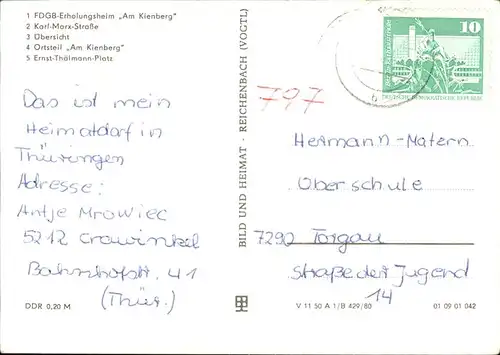 1 FDGB-Erholungsheim „Am Kienberg"
2 Karl-Marx-Straße
3 Übersicht
4 Ortsteil „Am Kienberg"
5 Ernst-Thälmann-Platz
Das ist mein
Heimatdorf in
Thüringen
Adresse:
Antje Mrowiec
5212 Crawinkel
Bahnhofstr. 41
(Thür.)
DDR 0,20 M
BILD UND HEIMAT · REICHENBACH (VOGTL)
797
10
DEUTSCHE DEMOKRATISCHE REPUBLIK
Hermann-Matern
Oberschule
7290 Torgau
Straße der Jugend
14
V 11 50 A 1/B 429/80
01 09 01 042